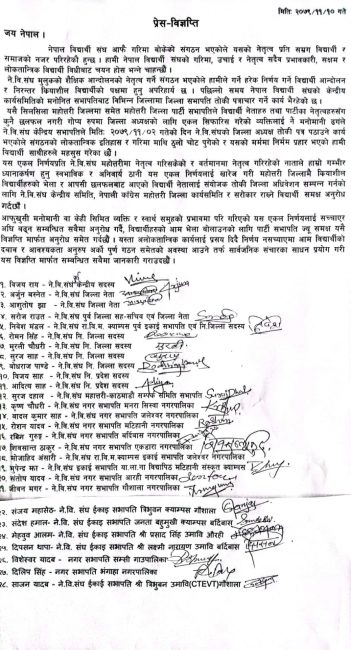 मिति: २०७९/११/१० गते
प्रेस-विज्ञप्ति
जय नेपाल ।
नेपाल विद्यार्थी संघ आफै गरिमा बोकेको संगठन भएकोले यसको नेतृत्व प्रति समग्र विद्यार्थी र
समाजको नजर परिरहेकै हुन्छ । हामी नेपाल विद्यार्थी संघको गरिमा, उचाई र नेतृत्व सदैव प्रभावकारी, सक्षम र
लोकतान्त्रिक विद्यार्थी विधीबाट चयन होस भन्ने चाहन्छौं ।
ने.वि.संघ मुलुकको शैक्षिक आन्दोलनको नेतृत्व गर्ने संगठन भएकोले हामीले गर्ने हरेक निर्णय गर्ने विद्यार्थी आन्दोलन
र निरन्तर कियाशील विद्यार्थीको पक्षमा हुनु अपरिहार्य छ । पछिल्लो समय नेपाल विद्यार्थी संघको केन्द्रीय
कार्यसमितिको मनोनित सभापतिबाट विभिन्न जिल्लामा जिल्ला सभापति तोकी पत्राचार गर्ने कार्य भैरहेको छ ।
यसै सिलसिला महोत्तरी जिल्ला समेत महोत्तरी जिल्ला पार्टी सभापतिले विद्यार्थी नेताहरु तथा पार्टीका नेतृत्वहरुसंग
कुनै छलफल नगरी गोप्य रुपमा जिल्ला अध्यक्षको लागि एकल सिफारिस गरेको व्यक्तिलाई नै मनोमानी ढंगले
ने.वि.संघ केन्द्रिय सभापतिले मिति: २०७९/११/०२ गतेको दिन ने.वि.संघको जिल्ला अध्यक्ष तोकी पत्र पठाउने कार्य
भएकोले संगठनको लोकतान्त्रिक इतिहास र गरिमा माथि ठुलो चोट पुगेको र यसको मर्ममा निर्मम प्रहार भएको हामी
विद्यार्थी साथीहरुले महसुस गरेका छौं ।
यस एकल निर्णयप्रति ने.वि.संघ महोत्तरीमा नेतृत्व गरिसकेको र वर्तमानमा नेतृत्व गरिरहेको नाताले हाम्रो गम्भीर
ध्यानाकर्षण हुनु स्वभाविक र अनिवार्य ठानी यस एकल निर्णयलाई खारेज गरी महोत्तरी जिल्लामै कियाशील
विद्यार्थीहरुको भेला र आपसी छलफलबाट आएको विद्यार्थी नेतालाई संयोजक तोकी जिल्ला अधिवेशन सम्पन्न गर्नको
लागि ने.वि.संघ केन्द्रीय समिति, नेपाली काँग्रेस महोत्तरी जिल्ला कार्यसमिति र सरोकार राख्ने विद्यार्थी समक्ष अनुरोध
गर्दछौं ।
आफुखुशी मनोमानी वा केही सिमित व्यक्ति र स्वार्थ समुहको प्रभावमा परि गरिएको यस एकल निर्णयलाई सच्याएर
अघि बढ्न सम्बन्धीत सबैमा अनुरोध गर्दै, विद्यार्थीहरुको आम भेला बोलाउनको लागि पार्टी सभापति ज्यू समक्ष यसै
विज्ञप्ति मार्फत अनुरोध समेत गर्दछौं । यस्ता अलोकतान्त्रिक कार्यलाई प्रश्रय दिदै निर्णय नसच्याएमा आम विद्यार्थीको
दवाव र आवश्यकता अनुरुप अर्को पूर्ण गठन समेतको अवस्था आउने तर्फ सार्वजनिक संचारका साधन प्रयोग गरी
यस विज्ञप्ति मार्फत सम्बन्धीत सबैमा जानकारी गराउदछौं ।
१. विजय राय - ने.वि.संघ केन्द्रीय सदस्य
२. अर्जुन मस्नेत - ने.वि.संघ जिल्ला नेता
३. आशुतोष झा - ने.वि.संघ जिल्ला नेता
४. सरोज राउत - ने.वि.संघ पुर्व जिल्ला सह-सचिव एवं जिल्ला सदस्य
५. निवेश मंडल - ने.वि.संघ रा.वि.म. क्याम्पस पुर्व इकाई सभापति एवं नि.जिल्ला सदस्य
६. रोमन सिंह - ने.वि.संघ नि. जिल्ला सदस्य
७. मुरली चौधरी - ने.वि.संघ नि. जिल्ला सदस्य
८. सुरज साह - ने.वि.संघ नि. जिल्ला सदस्य
९. बोधराज पाण्डे - ने.वि.संघ नि. जिल्ला सदस्य
१०. विजय साह - ने.वि.संघ नि. प्रदेश सदस्य
११. आदित्य साह - ने.वि.संघ नि. प्रदेश सदस्य
१२. सुरज दहाल - ने.वि.संघ महोत्तरी-काठमाडौ सम्पर्क समिति सभापति
१३. कृष्ण चौधरी - ने.वि.संघ नगर सभापति मनरा सिस्वा नगरपालिका
१४. यादव कुमार साह - ने.वि.संघ नगर सभापति जलेश्वर नगरपालिका
१५. रोशन यादव - ने.वि.संघ नगर सभापति मटिहानी नगरपालिका
१६. रक्षिन गुरुङ - ने.वि.संघ नगर सभापति बर्दिबास नगरपालिका
१७. शिवसान्त ठाकुर - ने.वि.संघ नगर सभापति एकडारा नगरपालिका
१८. मोजाहिद अंसारी - ने.वि.संघ इकाई सभापति रा.वि.म.क्याम्पस जलेश्वर नगरपालिका
१९. भुपेन्द्र झा - ने.वि.संघ इकाई सभापति या.ला.गा विद्यापिठ मटिहानी संस्कृत क्याम्पस
२०. सन्तोष यादव - ने.वि.संघ नगर सभापति आरही नगरपालिका
२१. जीवन मगर - ने.वि.संघ नगर सभापति गौशाला नगरपालिका
२२. संजय महासेठ- ने.वि. संघ ईकाई सभापति त्रिभुवन क्याम्पस गौशाला
२३. संदेश हमाल- ने.वि. संघ ईकाई सभापति जनता बहुमुखी क्याम्पस बर्दिबास
२४. मेहबुब आलम- ने.वि. संघ ईकाई सभापति श्री प्रसाद सिंह उमावि औरही
२५. दिपसन थापा- ने.वि. संघ ईकाई सभापति श्री लक्ष्मी नारायण उमावि बर्दिबास
२६. विशेश्वर यादब - नगर सभापति सम्सी गाउपालिका
२७. दिलिप सिंह - नगर सभापति भंगाहा नगरपालिका
२८. साजन यादब - ने.वि. संघ ईकाई सभापति श्री त्रिभुबन उमावि(CTEVT)गौशाला